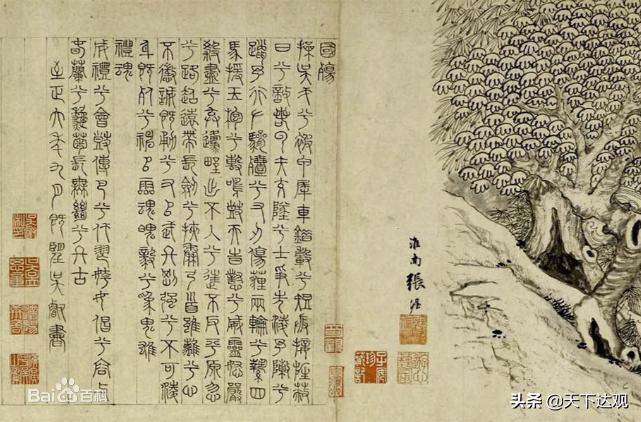 國殤
操吳戈兮被甲犀車錯轂兮短兵接旌蔽
日兮敵若雲矢交墜兮士爭先凌余陣兮
躐余行左驂殪兮右刃傷霾兩輪兮縶四
馬援玉枹兮擊鳴鼓天時懟兮威靈怒嚴
殺盡兮棄原野出不入兮往不反平原忽
兮路超遠帶長劍兮挾秦弓首雖離兮心
不懲誠既勇兮又以武終剛強兮不可凌
身既死兮神以靈魂魄毅兮為鬼雄
禮魂
成禮兮會鼓傳芭兮代舞姱女倡兮容與
春蘭兮秋菊長無絕兮終古
至正六年九月既望吳叡書
淮南張渥
Bai百科
头条 @天下达观